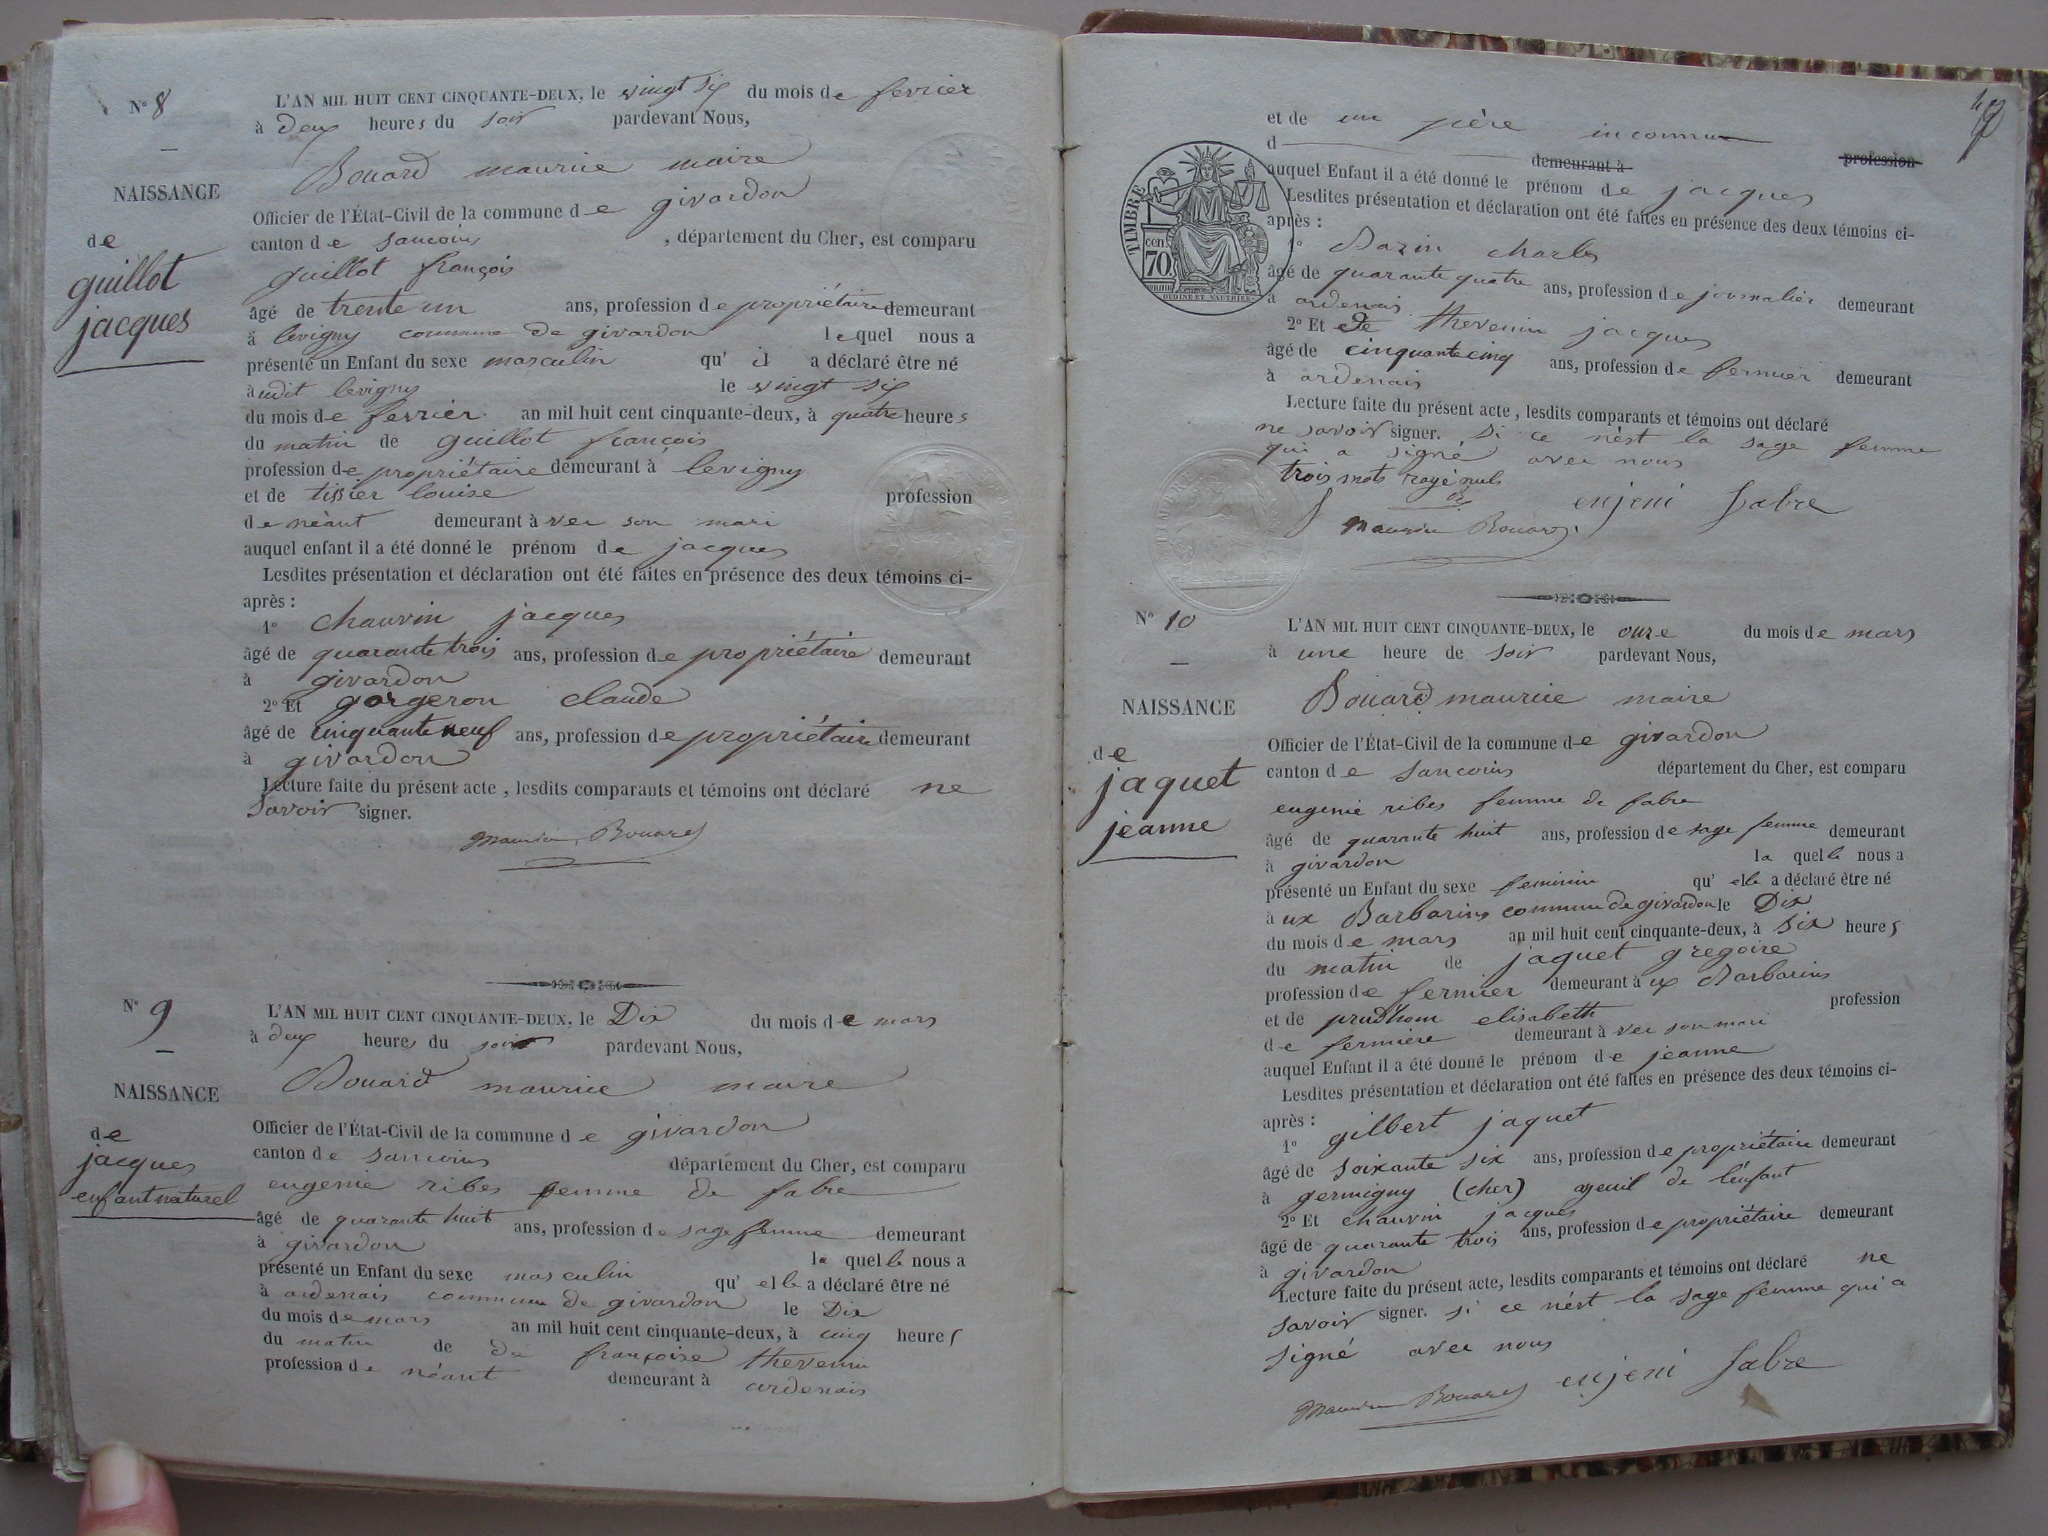 N° 8
L'AN MIL HUIT CENT CINQUANTE-DEUX, le vingt six du mois de fevrier
à deux heures du soir pardevant Nous,
Bouard maurice maire
NAISSANCE
Officier de l'État-Civil de la commune de givardon
de
canton de sancoins , département du Cher, est comparu
guillot
jacques
guillot françois
âgé de trente un ans, profession de propriétaire demeurant
à levigny commune de givardon lequel nous a
présenté un Enfant du sexe masculin qu' il a déclaré être né
audit levigny le vingt six
du mois de fevrier an mil huit cent cinquante-deux, à quatre heures
du matin de guillot françois
profession de propriétaire demeurant à levigny
et de tissier louise profession
de nèant demeurant à vec son mari
auquel enfant il a été donné le prénom de jacques
Lesdites présentation et déclaration ont été faites en présence des deux témoins ci-
après :
1° chauvin jacques
âgé de quarante trois ans, profession de propriétaire demeurant
à givardon
2° Et gorgeron claude
âgé de cinquante neuf ans, profession de propriétaire demeurant
à givardon
Lecture faite du présent acte, lesdits comparants et témoins ont déclaré ne
savoir signer.
Maurice Bouard
N° 9
L'AN MIL HUIT CENT CINQUANTE-DEUX, le Dix du mois de mars
à deux heures du soir pardevant Nous,
Bouard maurice maire
NAISSANCE
Officier de l'État-Civil de la commune de givardon
de
jacques
enfant naturel
canton de sancoins département du Cher, est comparu
eugenie ribes femme de fabre
âgé de quarante huit ans, profession de sage femme demeurant
à givardon laquelle nous a
présenté un Enfant du sexe masculin qu' elle a déclaré être né
à ardenais commune de givardon le Dix
du mois de mars an mil huit cent cinquante-deux, à cinq heures
du matin de de françoise thevenin
profession de néant demeurant à ardenais
et de un père inconnu
d demeurant à profession
auquel Enfant il a été donné le prénom de jacques
Lesdites présentation et déclaration ont été faites en présence des deux témoins ci-
après :
TIMBRE
70 cen
OUDINE ET VAUTHIER
1° Bazin charles
âgé de quarante quatre ans, profession de journalier demeurant
à ardenais
2° Et de thevenin jacques
âgé de cinquante cinq ans, profession de fermier demeurant
à ardenais
Lecture faite du présent acte, lesdits comparants et témoins ont déclaré
ne savoir signer. si ce n'èst la sage femme
qui a signé avec nous
trois mots rayé nuls
enjeni fabre
Maurice Bouard
N° 10
L'AN MIL HUIT CENT CINQUANTE-DEUX, le onze du mois de mars
à une heure de soir pardevant Nous,
Bouard maurice maire
NAISSANCE
Officier de l'État-Civil de la commune de givardon
de
jaquet
jeanne
canton de sancoins département du Cher, est comparu
eugenie ribes femme de fabre
âgé de quarante huit ans, profession de sage femme demeurant
à givardon laquelle nous a
présenté un Enfant du sexe feminin qu' elle a déclaré être né
à ux Barbarins commune de givardon le Dix
du mois de mars an mil huit cent cinquante-deux, à six heures
du matin de jaquet gregoire
profession de fermier demeurant à ux Barbarins
et de prudhom elisabeth profession
de fermière demeurant à vec son mari
auquel Enfant il a été donné le prénom de jeanne
Lesdites présentation et déclaration ont été faites en présence des deux témoins ci-
après :
1° gilbert jaquet
âgé de soixante six ans, profession de propriétaire demeurant
à germigny (cher) ayeuil de l'enfant
2° Et chauvin jacques
âgé de quarante trois ans, profession de propriétaire demeurant
à givardon
Lecture faite du présent acte, lesdits comparants et témoins ont déclaré ne
savoir signer. si ce n'èst la sage femme qui a
signé avec nous
Maurice Bouard enjeni fabre